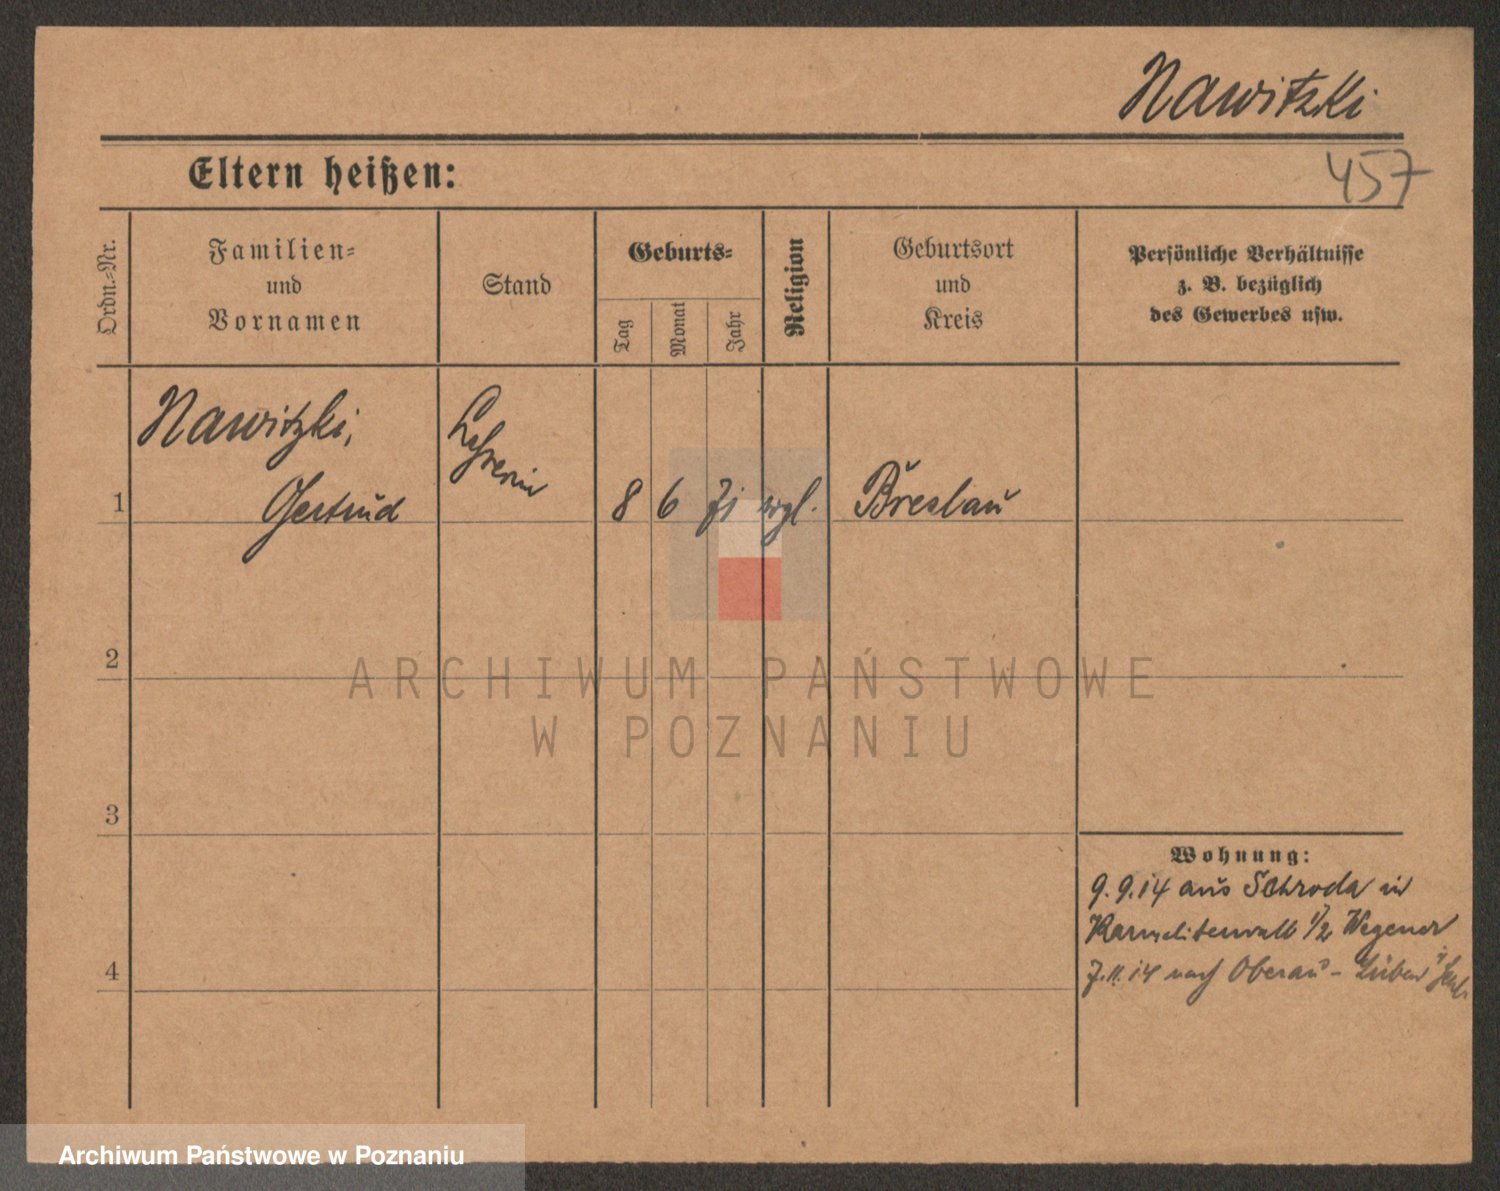 Nawitzki
Eltern heißen:
457
Ordn.-Nr.
Familien-
und
Vornamen
Stand
Geburts-
Tag
Monat
Jahr
Religion
Geburtsort
und
Kreis
Persönliche Verhältnisse
z. B. bezüglich
des Gewerbes usw.
Nawitzki,
Gertrud
Lehrerin
1
8 6 71 evgl.
Breslau
2
ARCHIWUM PAŃSTWOWE
W POZNANIU
3
Wohnung:
9.9.14 aus Schroda in
Karmelitenwall 1/2 Wegener
7.11.14 nach Oberau - Lüben
4
Archiwum Państwowe w Poznaniu